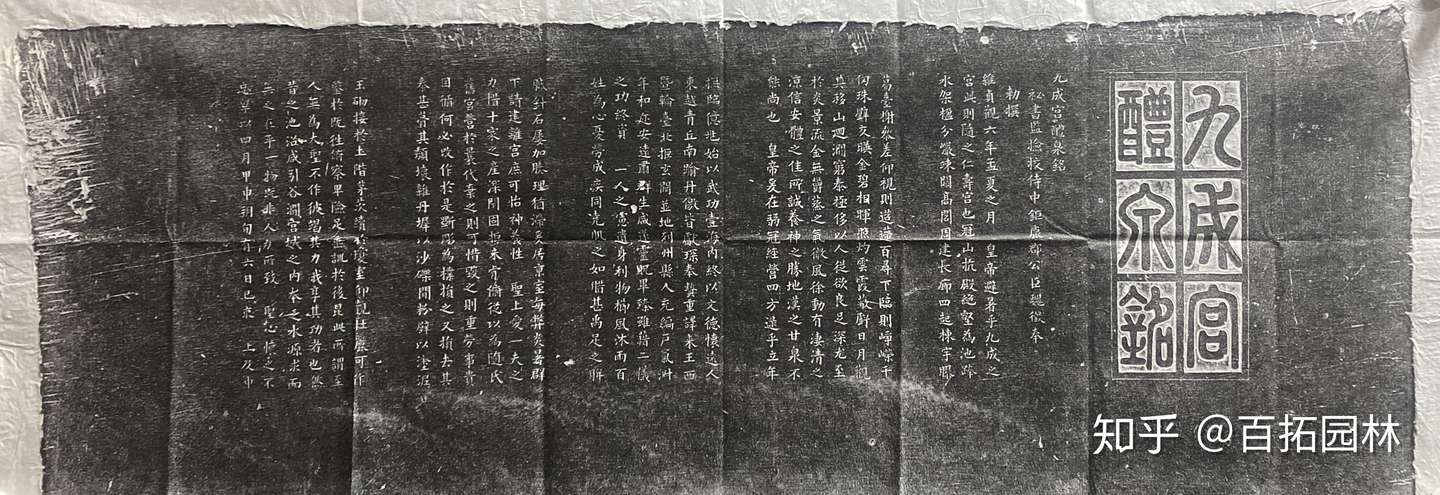 九成宮
醴泉銘
九成宮醴泉銘
祕書監撿挍侍中鉅鹿郡公臣魏徵奉
勑撰
維貞觀六年孟夏之月 皇帝避暑乎九成之
宮此則随之仁壽宮也冠山抗殿絶壑為池跨
水架楹分巖竦闕高閣周建長廊四起棟宇膠
葛臺榭參差仰視則迢遰百尋下臨則崢嶸千
仞珠璧交暎金碧相暉照灼雲霞蔽虧日月觀
其移山迴澗窮泰極侈以人從欲良足深尤至
於炎景流金無鬱蒸之氣微風徐動有淒清之
凉信安體之佳所誠養神之勝地漢之甘泉不
能尚也 皇帝爰在弱冠經營四方逮乎立年
撫臨億兆始以武功壹海内終以文德懷遠人
東越青丘南踰丹儌皆獻琛奉贄重譯來王西
暨輪臺北拒玄闕並地列州縣人充編戶氣淑
年和迩安遠肅群生咸遂靈貺畢臻雖藉二儀
之功終資 一人之慮遺身利物櫛風沐雨百
姓為心憂勞成疾同堯肌之如腊甚禹足之胼
胝針石屢加腠理猶滯爰居京室每弊炎暑群
下請建離宮庶可怡神養性 聖上愛一夫之
力惜十家之產深閇固拒未肯俯從以為随氏
舊宮營於曩代棄之則可惜毀之則重勞事貴
因循何必改作於是斵彫為樸損之又損去其
泰甚葺其頹壞雜丹墀以沙礫間粉壁以塗泥
玉砌接於土階茅茨續於瓊室仰觀壯麗可作
鑒於既往俯察卑儉足垂訓於後昆此所謂至
人無為大聖不作彼竭其力我享其功者也然
昔之池沼咸引谷澗宮城之内本乏水源求而
無之在乎一物既非人力所致 聖心懷之不
忘粤以四月甲申朔旬有六日己亥 上及中
知乎 @百拓园林